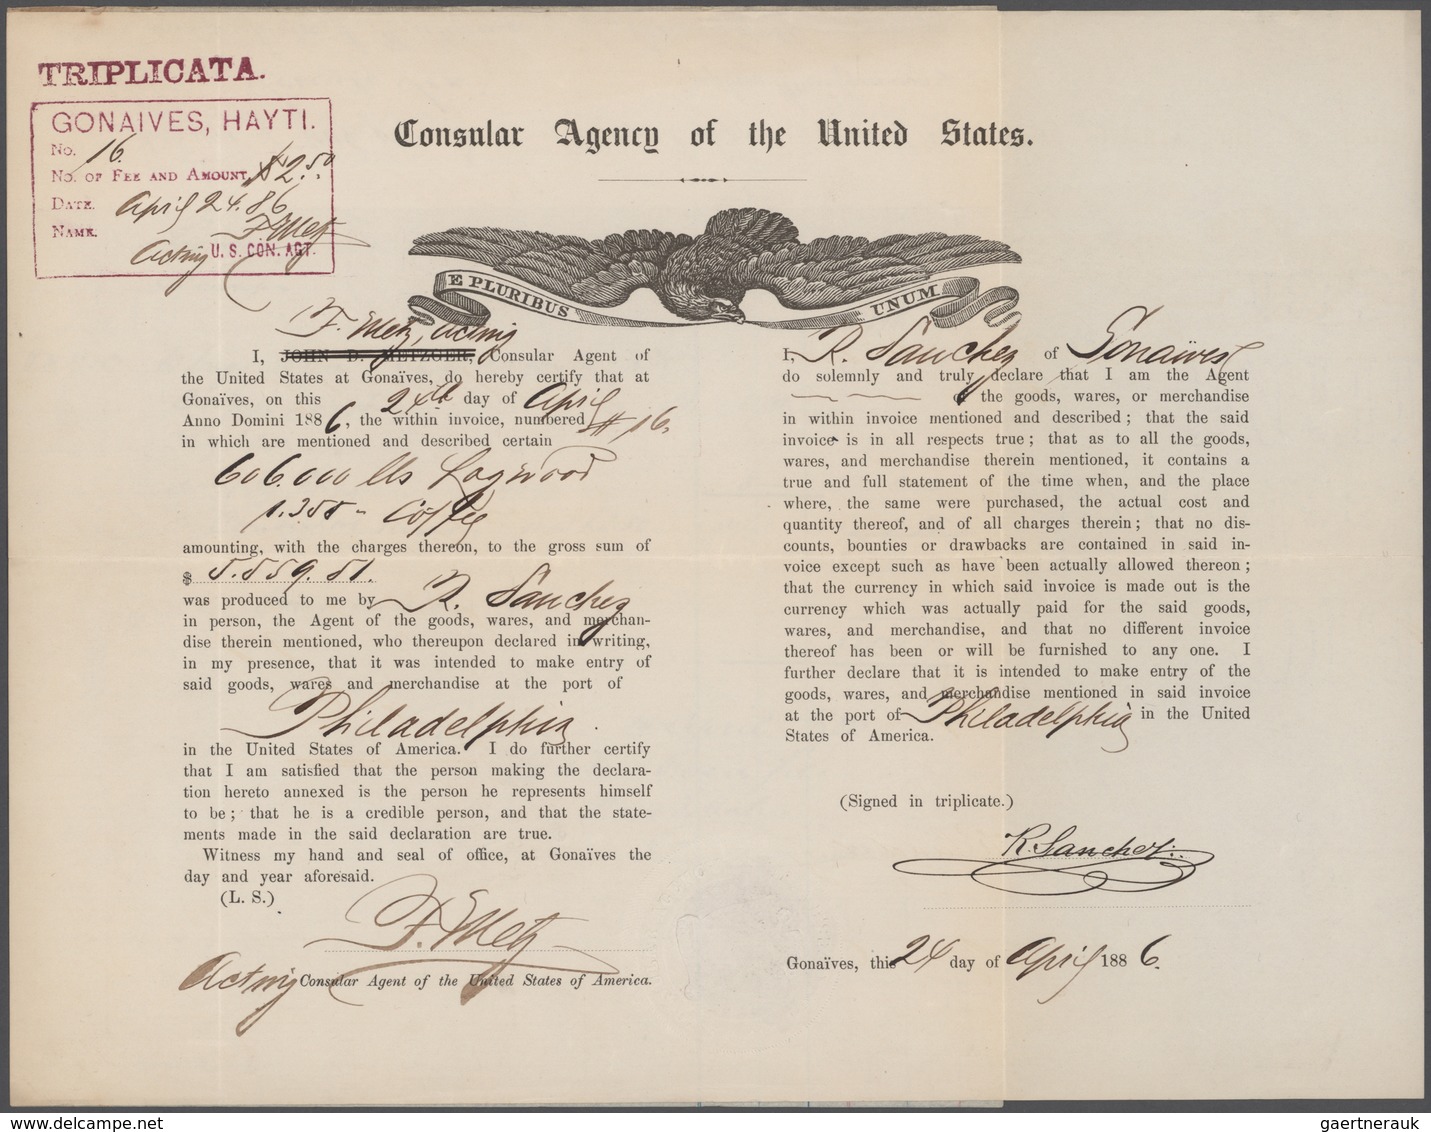 TRIPLICATA.
GONAIVES, HAYTI.
No. 16.
No. of Fee and Amount, $2.50
Date. April 24. 86
Name. F. Metz
Acting U. S. CON. AGT.
Consular Agency of the United States.
E PLURIBUS UNUM
F. Metz, Acting
I, JOHN D. METZGER, Consular Agent of
the United States at Gonaïves, do hereby certify that at
Gonaïves, on this 24th day of April
Anno Domini 1886, the within invoice, numbered # 16.
in which are mentioned and described certain
606.000 lbs Logwood
1.355 " Coffee
amounting, with the charges thereon, to the gross sum of
$ 5.559.51.
was produced to me by R. Sanchez
in person, the Agent of the goods, wares, and merchan-
dise therein mentioned, who thereupon declared in writing,
in my presence, that it was intended to make entry of
said goods, wares and merchandise at the port of
Philadelphia
in the United States of America. I do further certify
that I am satisfied that the person making the declara-
tion hereto annexed is the person he represents himself
to be; that he is a credible person, and that the state-
ments made in the said declaration are true.
Witness my hand and seal of office, at Gonaïves the
day and year aforesaid.
(L. S.)
F. Metz
Acting Consular Agent of the United States of America.
I, R. Sanchez of Gonaïves
do solemnly and truly declare that I am the Agent
of the goods, wares, or merchandise
in within invoice mentioned and described; that the said
invoice is in all respects true; that as to all the goods,
wares, and merchandise therein mentioned, it contains a
true and full statement of the time when, and the place
where, the same were purchased, the actual cost and
quantity thereof, and of all charges therein; that no dis-
counts, bounties or drawbacks are contained in said in-
voice except such as have been actually allowed thereon;
that the currency in which said invoice is made out is the
currency which was actually paid for the said goods,
wares, and merchandise, and that no different invoice
thereof has been or will be furnished to any one. I
further declare that it is intended to make entry of the
goods, wares, and merchandise mentioned in said invoice
at the port of Philadelphia in the United
States of America.
(Signed in triplicate.)
R. Sanchez
Gonaïves, this 24 day of April 1886.
gaertnerauk